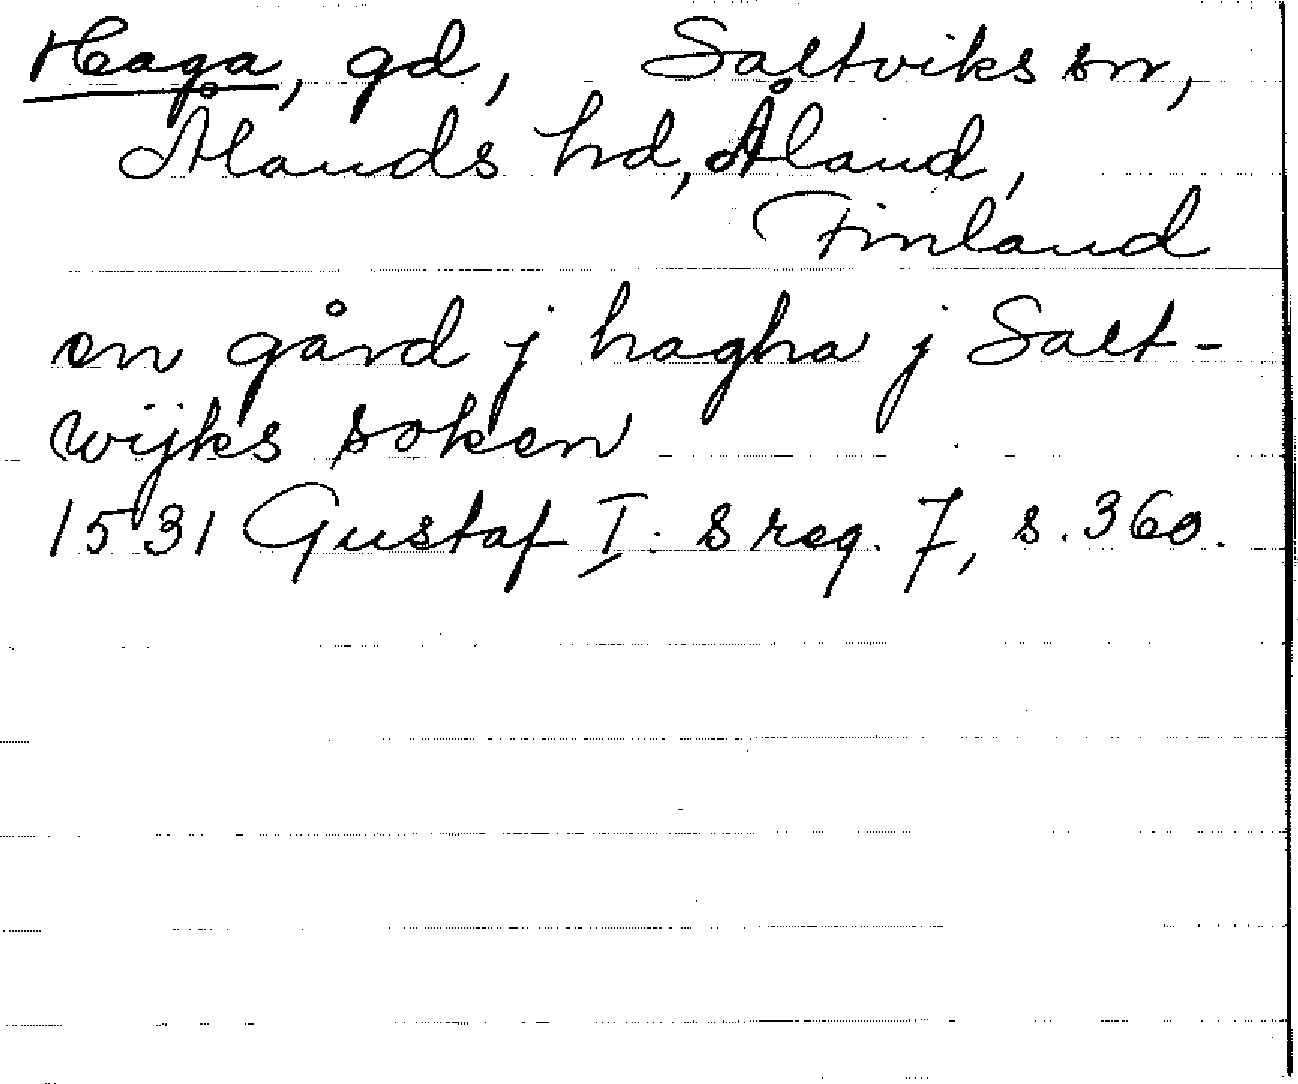 Haga, gd, Saltviks sn,
Ålands hd, Åland,
Finland
en gård j hagha j Salt-
wijks soken
1531 Gustaf I:s reg. 7, s. 360.